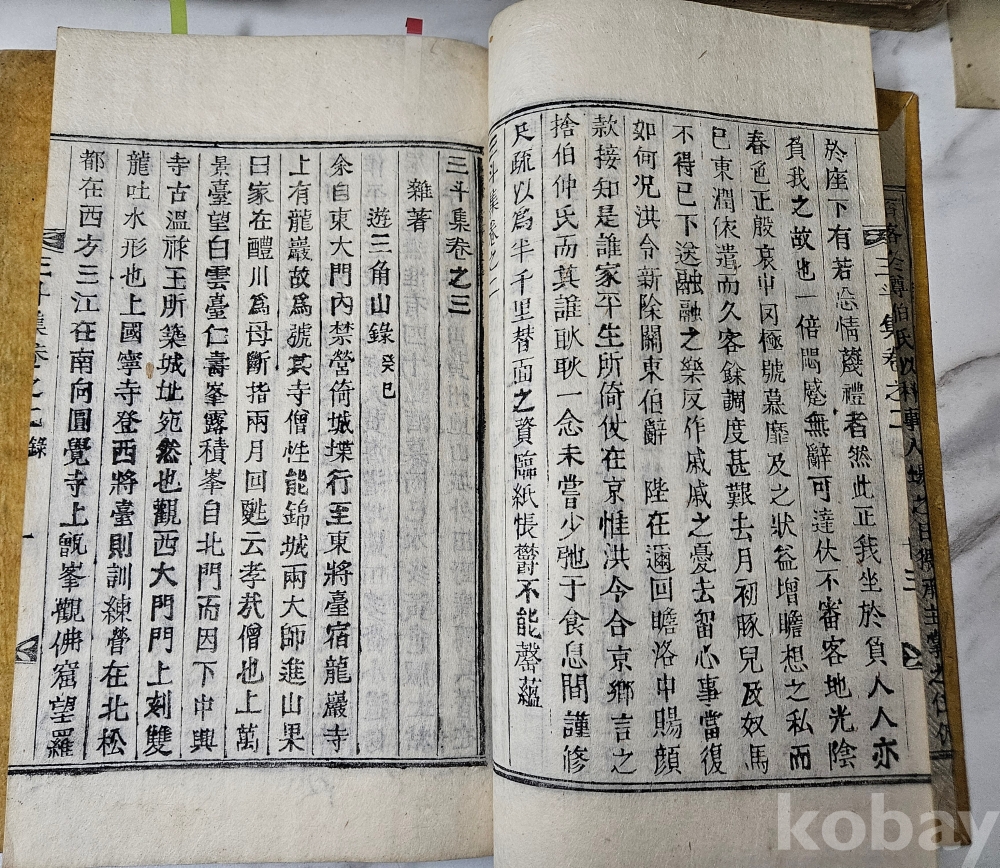 於座下有若忩情蔑禮者然此正我坐於負人人亦
負我之故也一倍悶蹙無辭可達伏不審客地光陰
春色正殷哀中罔極號慕靡及之狀益增瞻想之私而
已東潤依遣而久客餘調度甚艱去月初豚兒及奴馬
不得已下送融融之樂反作戚戚之憂去留心事當復
如何况洪令新除關東伯辭 陛在邇回瞻洛中賜顔
款接知是誰家平生所倚仗在京惟洪令合京鄉言之
捨伯仲氏而其誰耿耿一念未嘗少弛于食息間謹修
尺疏以爲半千里替面之資臨紙悵欝不能罄蘊
三斗集卷之二
三斗集卷之二
十三
三斗集卷之三
雜著
遊三角山錄 癸巳
余自東大門內禁營倚城堞行至東將臺宿龍巖寺
上有龍巖故爲號其寺僧性能錦城兩大師進山果
曰家在醴川爲母斷指兩月回甦云孝哉僧也上萬
景臺望白雲臺仁壽峯露積峯自北門而因下中興
寺古溫祚王所築城址宛然也觀西大門門上刻雙
龍吐水形也上國寧寺登西將臺則訓練營在北松
都在西方三江在南向圓覺寺上甑峯觀佛窟望羅
一
kobay